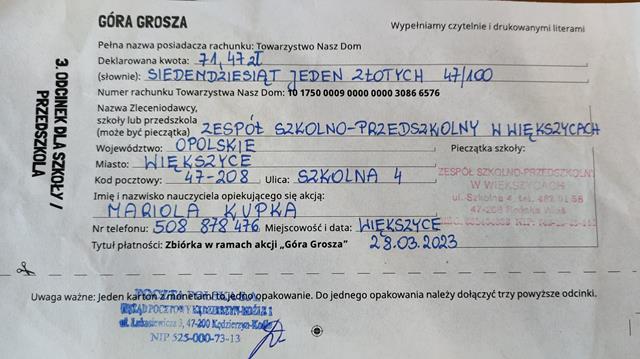 GÓRA GROSZA
Wypełniamy czytelnie i drukowanymi literami
3. ODCINEK DLA SZKOŁY / PRZEDSZKOLA
Pełna nazwa posiadacza rachunku: Towarzystwo Nasz Dom
Deklarowana kwota: 71,47 zł
(słownie): SIEDENDZIESIĄT JEDEN ZŁOTYCH 47/100
Numer rachunku Towarzystwa Nasz Dom: 10 1750 0009 0000 0000 3086 6576
Nazwa Zleceniodawcy,
szkoły lub przedszkola
(może być pieczątka) ZESPÓŁ SZKOLNO-PRZEDSZKOLNY W WIĘKSZYCACH
Województwo: OPOLSKIE Pieczątka szkoły:
Miasto: WIĘKSZYCE
Kod pocztowy: 47-208 Ulica: SZKOLNA 4
ZESPÓŁ SZKOLNO-PRZEDSZKOLNY
W WIĘKSZYCACH
ul. Szkolna 4, tel. 482 91 56
47-208 Reńska Wieś
Imię i nazwisko nauczyciela opiekującego się akcją:
MARIOLA KUPKA
Nr telefonu: 508 878 476 Miejscowość i data: WIĘKSZYCE
Tytuł płatności: Zbiórka w ramach akcji „Góra Grosza” 28.03.2023
Uwaga ważne: Jeden karton z monetami to jedno opakowanie. Do jednego opakowania należy dołączyć trzy powyższe odcinki.
POCZTA POLSKA S.A.
URZĄD POCZTOWY KĘDZIERZYN-KOŹLE 1
ul. Łukasiewicza 3, 47-200 Kędzierzyn-Koźle
NIP 525-000-73-13